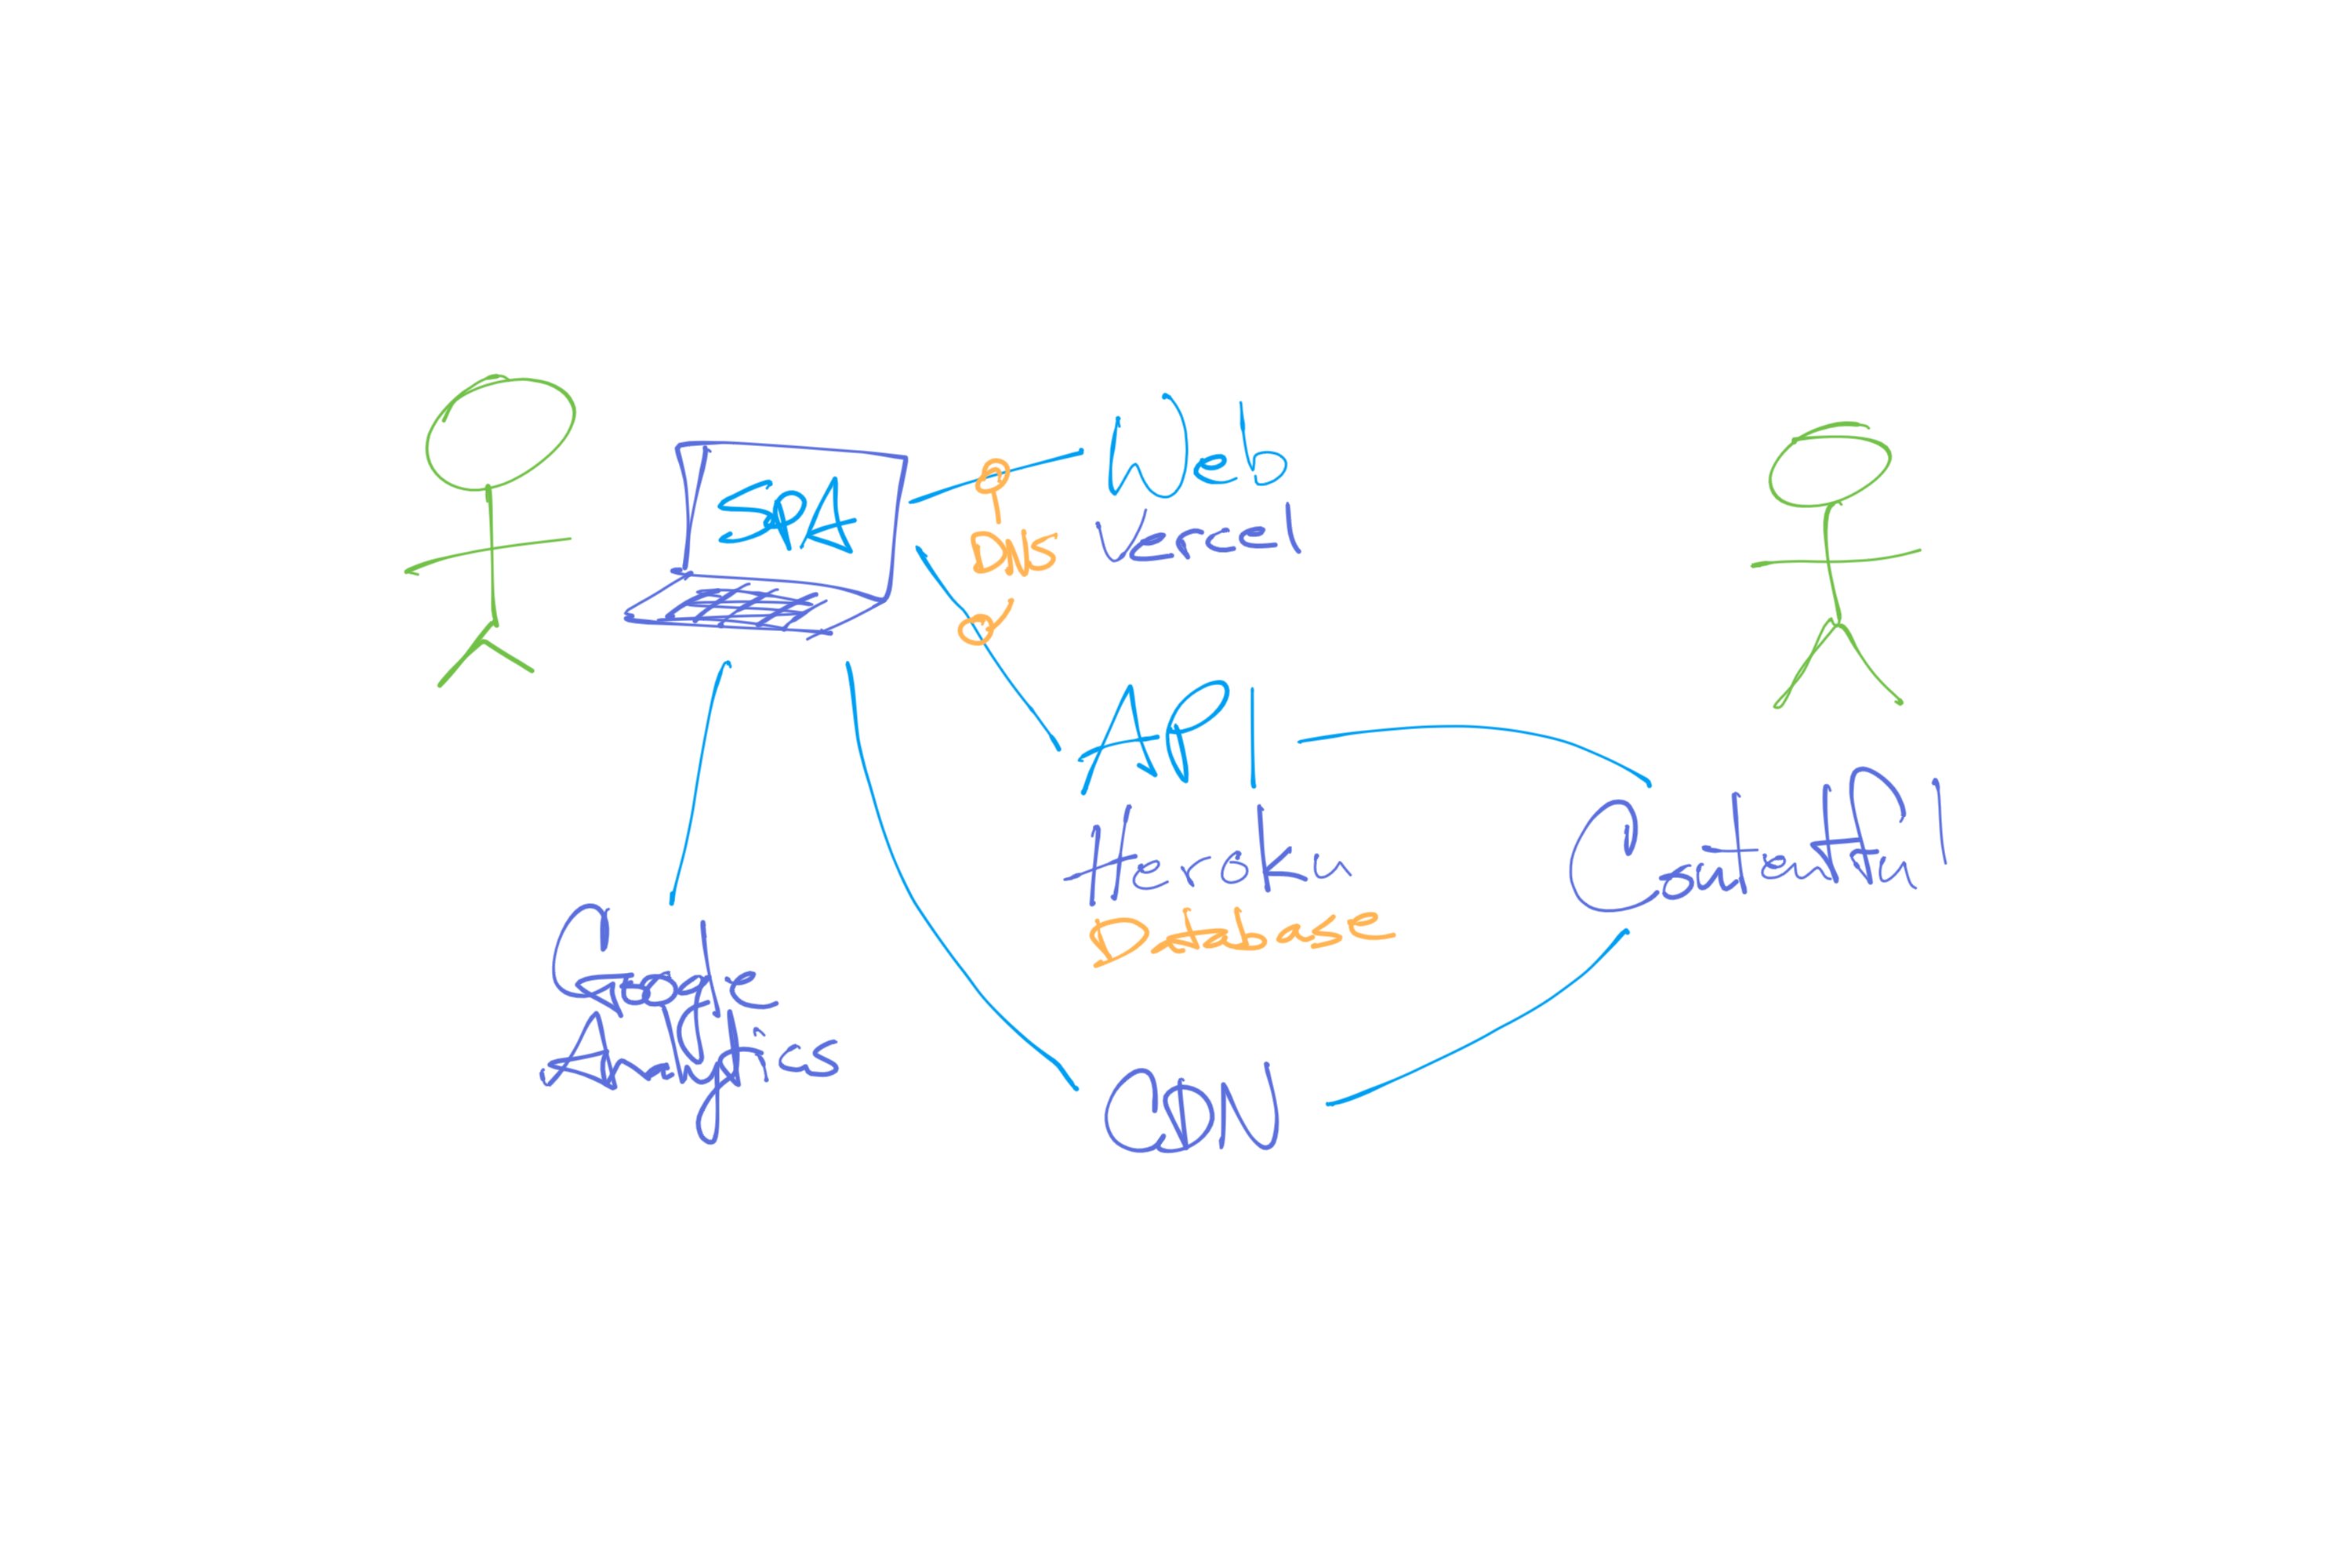 SPA
Web
Vercel
DNS
API
Heroku
Database
Contentful
Google
Analytics
CDN